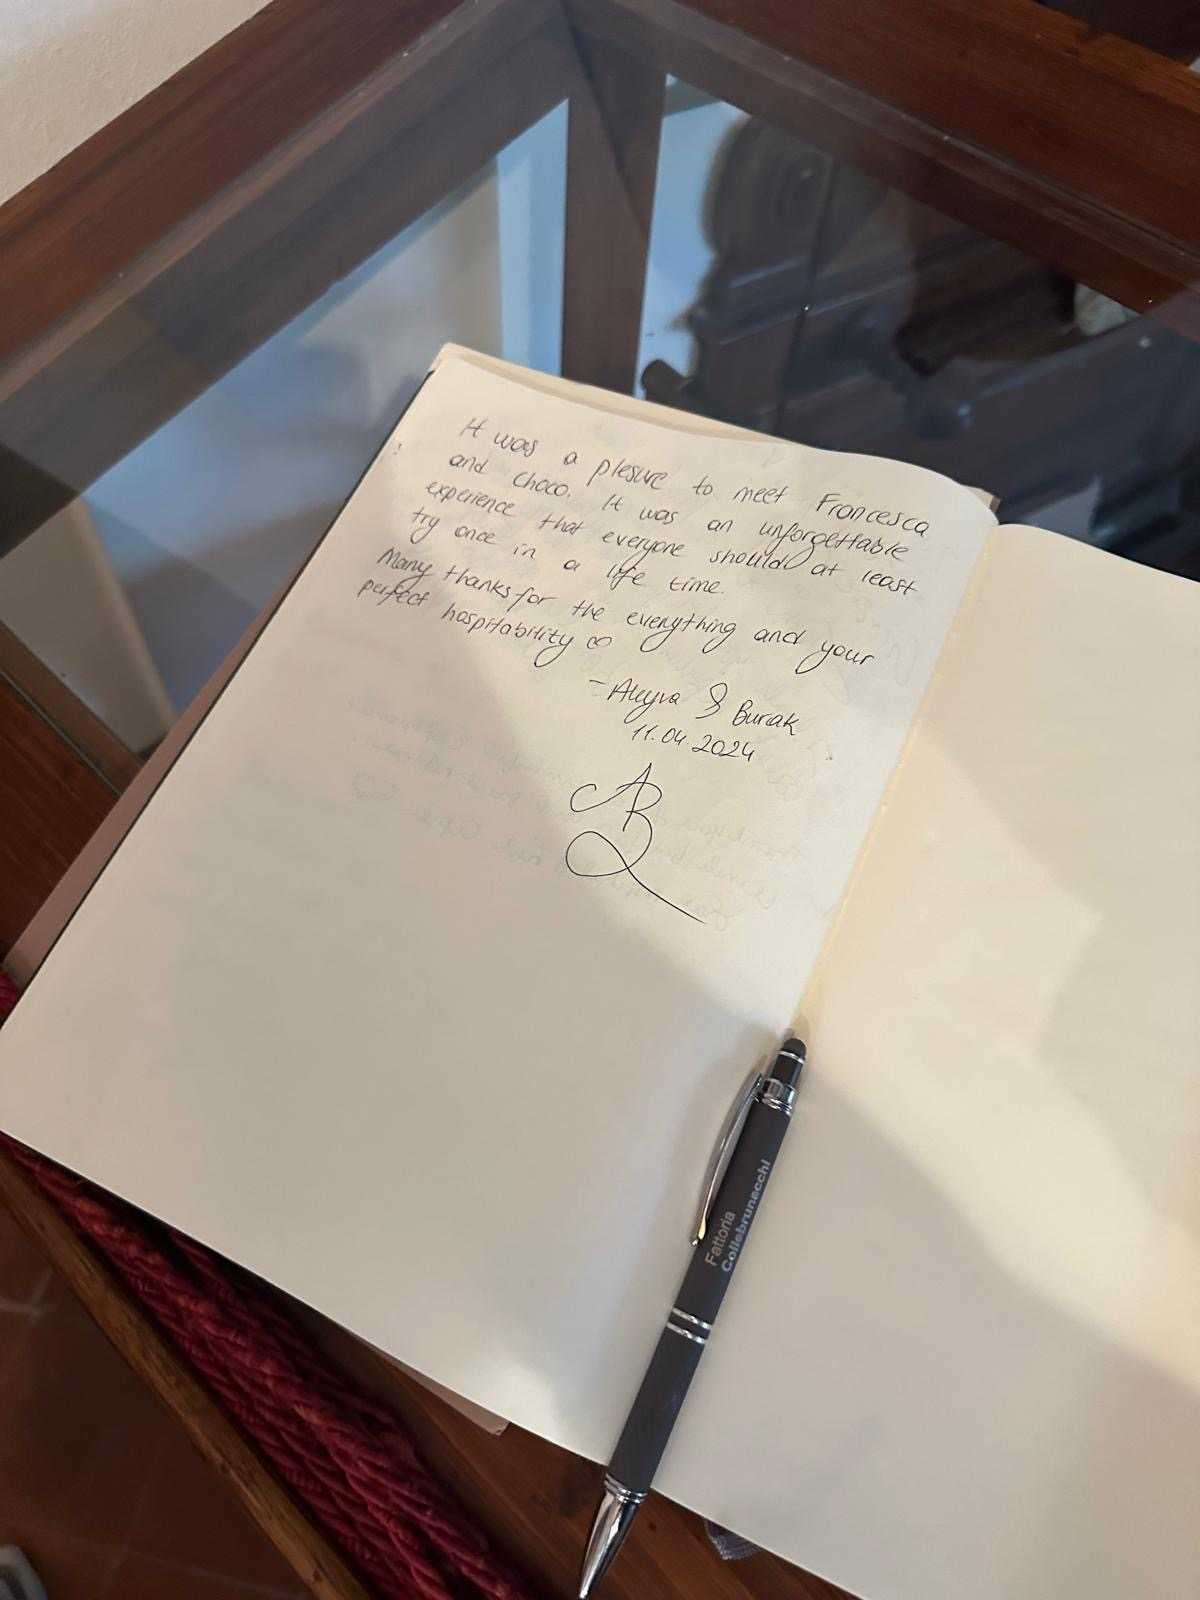 It was a plesure to meet Francesca
and Choco. It was an unforgettable
experience that everyone should at least
try once in a life time.
Many thanks for the everything and your
perfect hospitability ∞
- Aleyna & Burak
11.04.2024
AB
Fattoria
Collebrunacchi